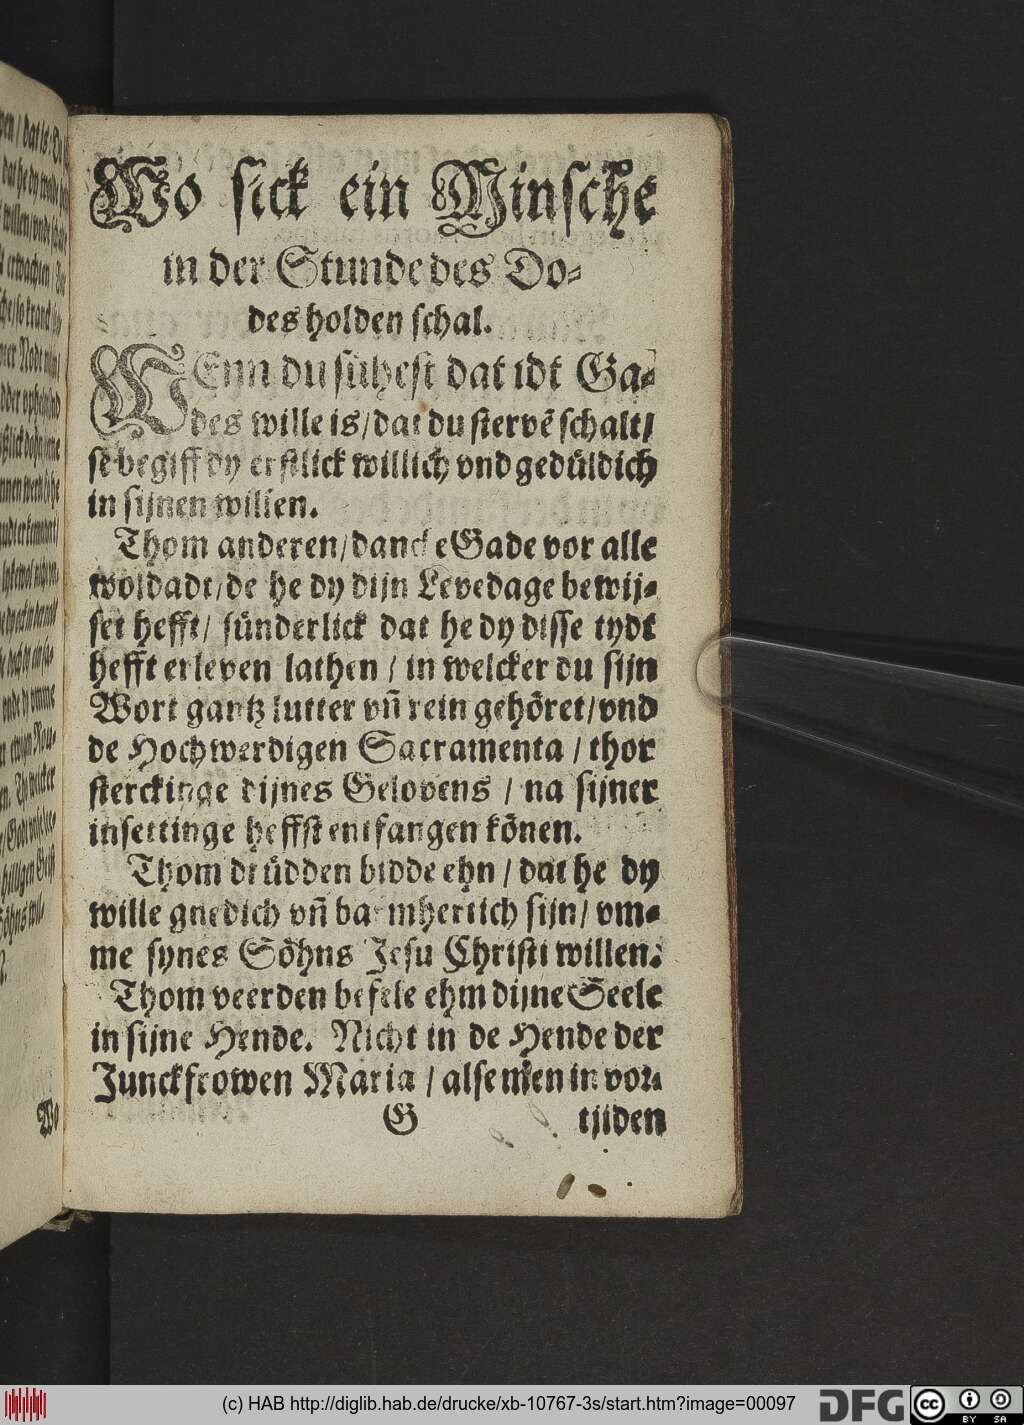 Wo sick ein Minsche
in der Stunde des Do-
des holden schal.
WEnn du sühest dat idt Ga-
des wille is/ dat du stervē schalt/
se begiff dy erstlick willich vnd gedüldich
in sijnen willen.
Thom anderen/ dancke Gade vor alle
woldadt/ de he dy dijn Levedage bewij-
set hefft/ sünderlick dat he dy disse tydt
hefft erleven lathen / in welcker du sijn
Wort gantz lutter vñ rein gehöret/ vnd
de Hochwerdigen Sacramenta / thor
sterckinge dijnes Gelovens / na sijner
insettinge heffst entfangen könen.
Thom drüdden bidde ehn / dat he dy
wille gnedich vñ barmhertich sijn/ vm-
me synes Söhns Jesu Christi willen.
Thom veerden befele ehm dijne Seele
in sijne Hende. Nicht in de Hende der
Junckfrowen Maria / alse men in vor-
G tjiden
Wo
(c) HAB http://diglib.hab.de/drucke/xb-10767-3s/start.htm?image=00097
DFG
cc
BY SA